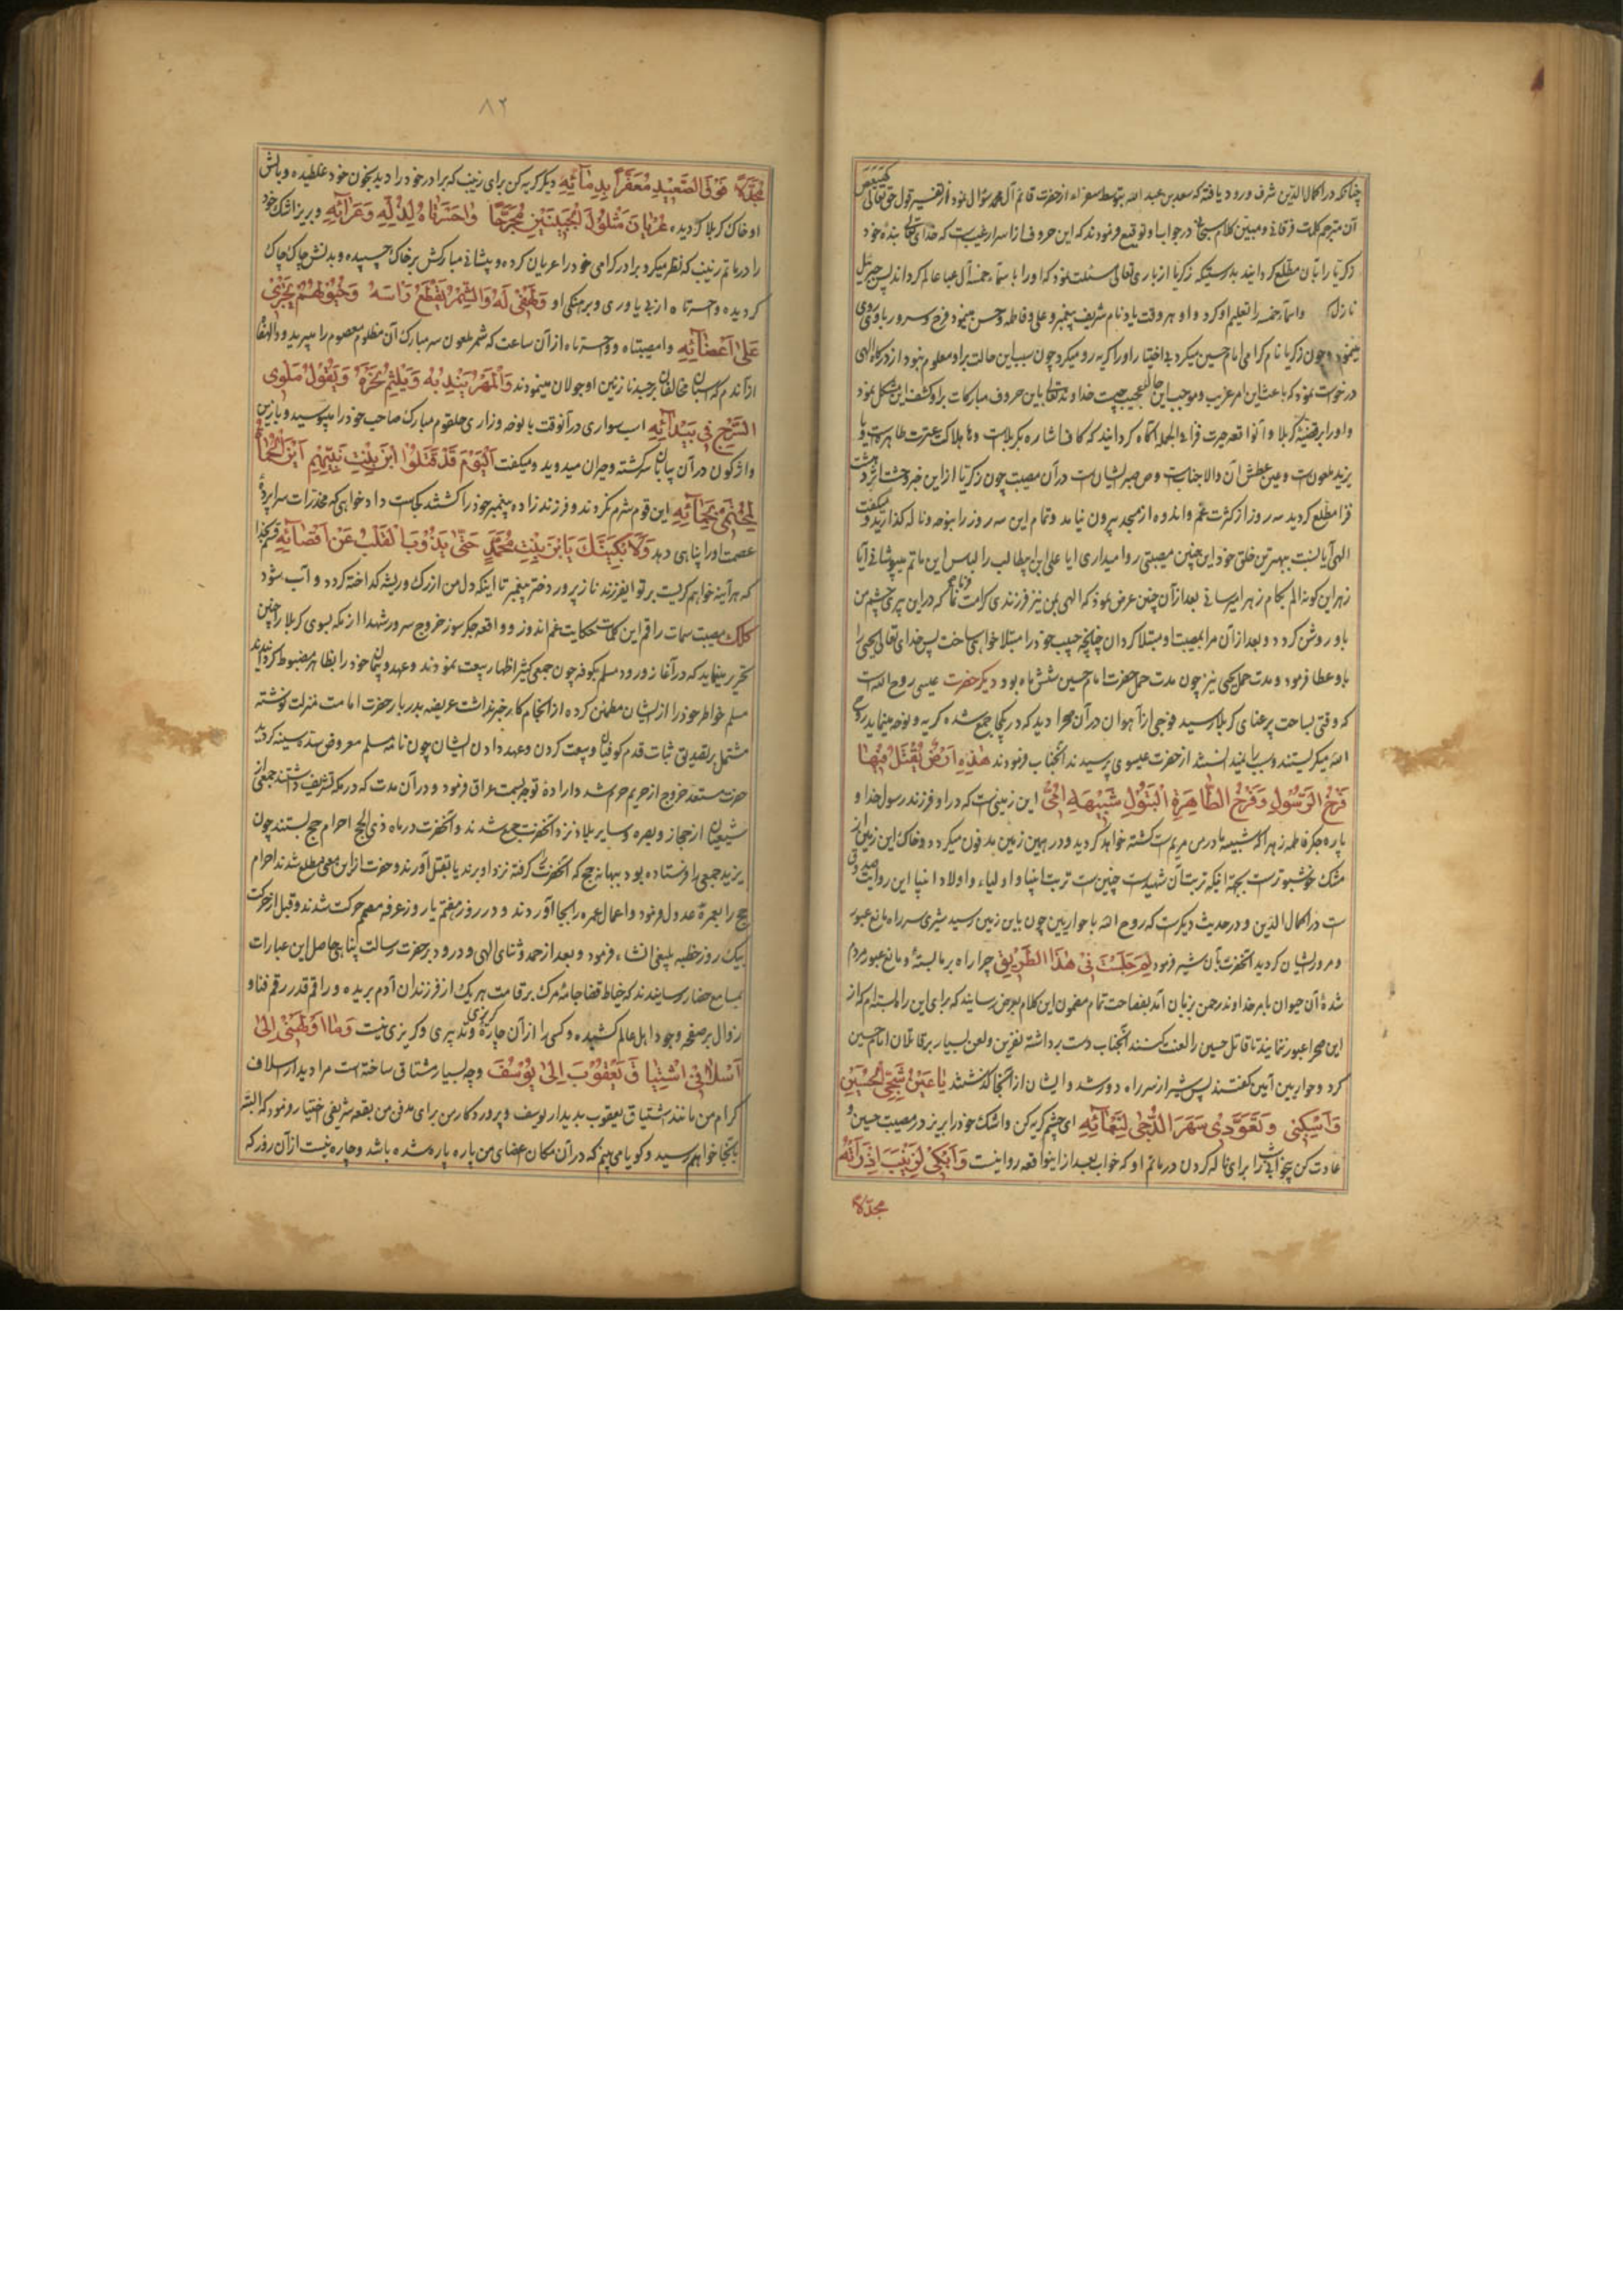 چنانکه در اکمال الدین شرف ورود یافته که سعد بن عبد الله بتوسط سفراء از حضرت قائم آل محمد سؤال نمود از تفسیر قول حق تعالی کهیعص
آن مترجم کلمات فرقانی و مبین کلام سبحانی در جواب او توقیع فرمودند که این حروف از اسرار غیب است که خدای تعالی بندهٔ خود
زکریا را بآن مطلع کردانید بدرستیکه زکریا از باری تعالی مسئلت نمود که او را با سماء خمسهٔ آل عبا عالم کرداند پس جبرئیل
نازل واسماء خمسه را تعلیم او کرد و او هر وقت یاد نام شریف پیغمبر و علی و فاطمه و حسن مینمود فرح و سرور باو روی
مینمود و چون زکریا نام کرامی امام حسین میکرد بی اختیار او را کریه رو میکرد چون سبب این حالت بر او معلوم نبود از درکاه الهی
درخواست نمود که باعث این امر غریب و موجب این حالت عجیب چیست خداوند تعالی باین حروف مبارکات بر او کشف این مشکل نمود
و او را بر قضیهٔ کربلا و آنواقعه حیرت فزا فی الجمله آکاه کردانید که کاف اشاره بکربلاست وها هلاکت عترت طاهره است و یا
یزید ملعونست و عین عطش آن والا جنابست و ص صبر ایشانست در آن مصیبت چون زکریا از این خبر وحشت اثر دهشت
فزا مطلع کردید سه روز از کثرت غم و اندوه از مسجد بیرون نیامد و تمام این سه روز را بنوحه و ناله کذرانید و میکفت
الهی آیا نسبت ببهترین خلق خود این چنین مصیبتی روا میداری ایا علی ابن ابیطالب را لباس این ماتم میپوشانی آیا
زهر این کونه الم بکام زهرا میرسانی بعد از آن چنین عرض نمود که الهی بمن نیز فرزندی کرامت فرما که در این پیری چشم من
باو روشن کردد و بعد از آن مرا بمصیبت او مبتلا کردان چنانچه حبیب خود را مبتلا خواهی ساخت پس خدای تعالی یحیی را
باو عطا فرمود و مدت حمل یحیی نیز چون مدت حمل حضرت امام حسین شش ماه بود دیکر حضرت عیسی روح الله است
که وقتی بساحت پر عنای کربلا رسید فوجی از آهوان در آن صحرا دید که در یکجا جمع شده کریه و نوحه مینمایند روح
الله میکریستند و سبب را نمیدانستند از حضرت عیسوی پرسیدند آنجناب فرمودند هٰذِهِ اَرْضٌ یُقْتَلُ فِیْهَا
فَرْخُ الرَّسُوْلِ وَ فَرْخُ الطَّاهِرَةِ الْبَتُوْلِ شَبِیْهَةِ اُمِّیْ این زمینی است که در او فرزند رسول خدا و
پاره جکر فاطمه زهرا که شبیهه مادرمن مریم است کشته خواهد کردید و در همین زمین مدفون میکردد و خاک این زمین از
مشک خوشبوتر است بجهة اینکه تربت آن شهید است چنین است تربت انبیا و اولیاء و اولاد انبیا این روایت صدوق
ست در اکمال الدین و در حدیث دیکر است که روح الله با حواریین چون باین زمین رسید شیری سر راه مانع عبور
و مرور ایشان کردید آنحضرت بآن شیر فرمود لِمَ جَلَسْتَ فِیْ هٰذَا الطَّرِیْقِ چرا راه بر ما بستهٔ و مانع عبور مردم
شدهٔ آن حیوان بامر خداوند رحمن بزبان آمد بفصاحت تمام مضمون این کلام بعرض رسانید که برای این راه را بسته ام که از
این صحرا عبور ننمایند تا قاتل حسین را لعنت کنند آنجناب دست برداشته نفرین و لعن بسیار بر قاتلان امام حسین
کرد و حواریین آمین کفتند پس شیر از سر راه دور شد و ایشان از آنجا کذشتند یَا عَیْنُ سُحِّیْ لِلْحُسَیْنِ
وَاَسْکِبِیْ وَ تَعَوَّدِیْ سَهَرَ الدُّجٰی لِنَعَائِهِ ای چشم کریه کن و اشک خود را بریز در مصیبت حسین و
عادت کن بیخوابی شب را برای ناله کردن در ماتم او که خواب بعد از اینواقعه روا نیست وَابْکِیْ لِزَیْنَبَ اِذْ رَاَتْهُ
مجدّلاً
۸۲
مُجَدَّلاً فَوْقَ الصَّعِیْدِ مُعَفَّراً بِدِمَائِهِ دیکر کریه کن برای زینب که برادر خود را دید بخون خود غلطیده و بالش
او خاک کربلا کردیده عُرْیَانَ مَسْلُوْلَ الْجَبِیْنَیْنِ مُجَرَّحاً وَاحَسْرَتَاهُ لِذُلِّهِ وَ عَرَائِهِ و بریز اشک خود
را در ماتم زینب که نظر میکرد برادر کرامی خود را عریان کرده و پیشانی مبارکش بر خاک چسپیده و بدنش چاک چاک
کردیده واحسرتاه از بی یاوری و برهنکی او وَلَهْفِیْ لَهُ وَالشِّمْرُ یَقْطَعُ رَاسَهُ وَ خُیُوْلُهُمْ تَجْرِیْ
عَلیٰ اَعْضَائِهِ وامصیبتاه وواحسرتاه از آن ساعت که شمر ملعون سر مبارک آن مظلوم معصوم را میبرید ووالهفا
از آندم که اسبان مخالفان بر جسد نازنین او جولان مینمودند وَالْمُهْرُ یَنْدُبُهُ وَ یَلْثِمُ نَحْرَهُ وَ یَقُوْلُ مَلْوِی
السَّرْجِ فِیْ بَیْدَائِهِ اسب سواری در آنوقت با نوحه و زاری حلقوم مبارک صاحب خود را میبوسید و با زین
واژکون در آن بیابان سرکشته و حیران میدوید و میکفت اَلْیَوْمَ قَدْ قَتَلُوْا ابْنَ بِنْتِ نَبِیِّهِمْ اَیْنَ الْحُمَاةُ
لِیَحْتَمِیْ بِحِمَائِهِ این قوم شرم نکردند و فرزند زادهٔ پیغمبر خود را کشتند کجاست دادخواهی که مخدرات سراپردهٔ
عصمت او را پناهی دهد وَ لَاَبْکِیَنَّکَ یَا بْنَ بِنْتِ مُحَمَّدٍ حَتّٰی یَذُوْبَ الْقَلْبُ عَنْ اَقْصَائِهِ قسم بخدا
که هر آینه خواهم کریست بر تو ایفرزند نازپرور دختر پیغمبر تا اینکه دل من از رک و ریشه کداخته کردد و آب شود
کلک مصیبت سمات راقم این کلمات حکایت غم اندوز و واقعه جکر سوز خروج سرور شهدا از مکه بسوی کربلا را چنین
تحریر مینماید که در آغاز ورود مسلم بکوفه چون جمعی کثیر اظهار بیعت نمودند و عهد و پیمان خود را بظاهر مضبوط کردانیدند
مسلم خواطر خود را از ایشان مطمئن کرده از انجام کار خبر نداشت عریضه بدربار حضرت امامت منزلت نوشته
مشتمل بر تصدیق ثبات قدم کوفیان و بیعت کردن و عهد دادن ایشان چون نامهٔ مسلم معروض سدهٔ سنیه کردید
حضرت مستعد خروج از حریم حرم شد و ارادهٔ توجه بسمت عراق فرمود و در آن مدت که در مکه تشریف داشتند جمعی از
شیعیان از حجاز و بصره و سایر بلاد نزد آنحضرت جمع شدند و آنحضرت در ماه ذی الحج احرام حج بستند چون
یزید جمعی را فرستاده بود ببهانه حج که آنحضرت را کرفته نزد او برند یا بقتل آورند و حضرت از این معنی مطلع شدند احرام
حج را بعمره عدول فرمود و اعمال عمره را بجا آوردند و در روز هفتم یا روز عرفه مصمم حرکت شدند و قبل از حرکت
بیک روز خطبه بلیغی انشاء فرمود و بعد از حمد و ثنای الهی و درود بر حضرت رسالت پناهی حاصل این عبارات
بمسامع حضار رسانیدند که خیاط قضا جامهٔ مرک بر قامت هر یک از فرزندان آدم بریده و راقم قدر رقم فنا و
زوال بر صفحه وجود اهل عالم کشیده و کسی را از آن چاره و تدبیری و کریزی نیست وَمَا اَوْلَهَنِیْ اِلیٰ
اَسْلَافِیْ اشْتِیَاقَ یَعْقُوْبَ اِلیٰ یُوْسُفَ وچه بسیار مشتاق ساخته است مرا دیدار اسلاف
کرام من مانند اشتیاق یعقوب بدیدار یوسف و پروردکار من برای مدفن من بقعه شریفی اختیار فرمود که البته
بآنجا خواهم رسید و کویا می بینم که در آن مکان اعضای من پاره پاره شده باشد و چاره نیست از آن روز که